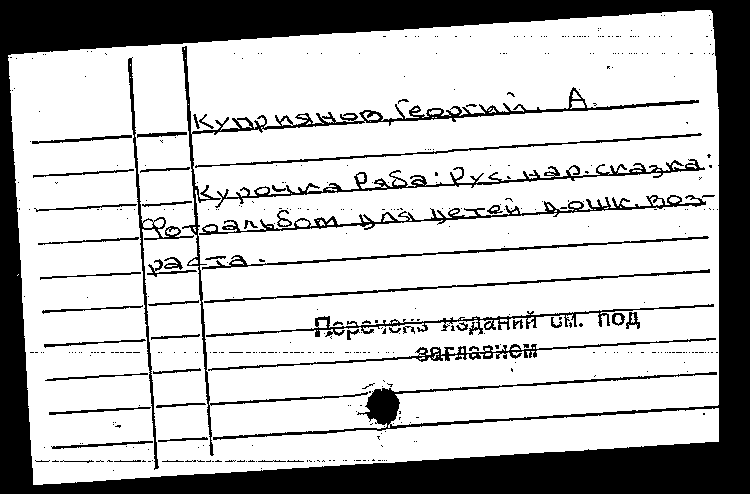 Куприянов, Георгий. А.
Курочка Ряба: Рус. нар. сказка:
Фотоальбом для детей дошк. воз-
раста.
Перечень изданий см. под
заглавием